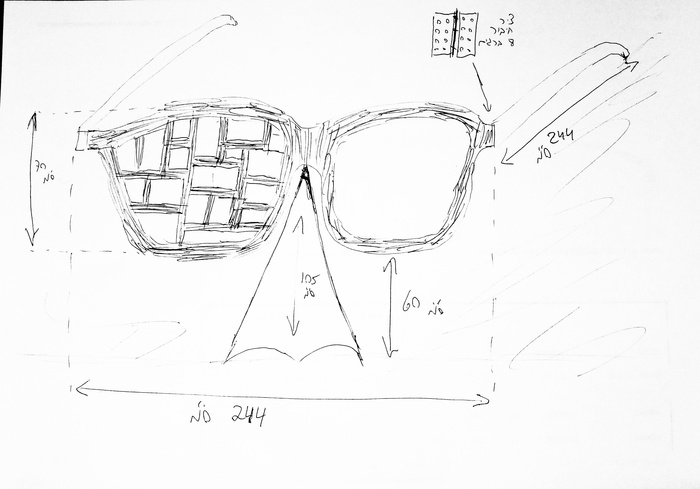 ציר
חיבור
8 ברגים
244
ס"מ
ס"מ
105
ס"מ
60 ס"מ
244 ס"מ